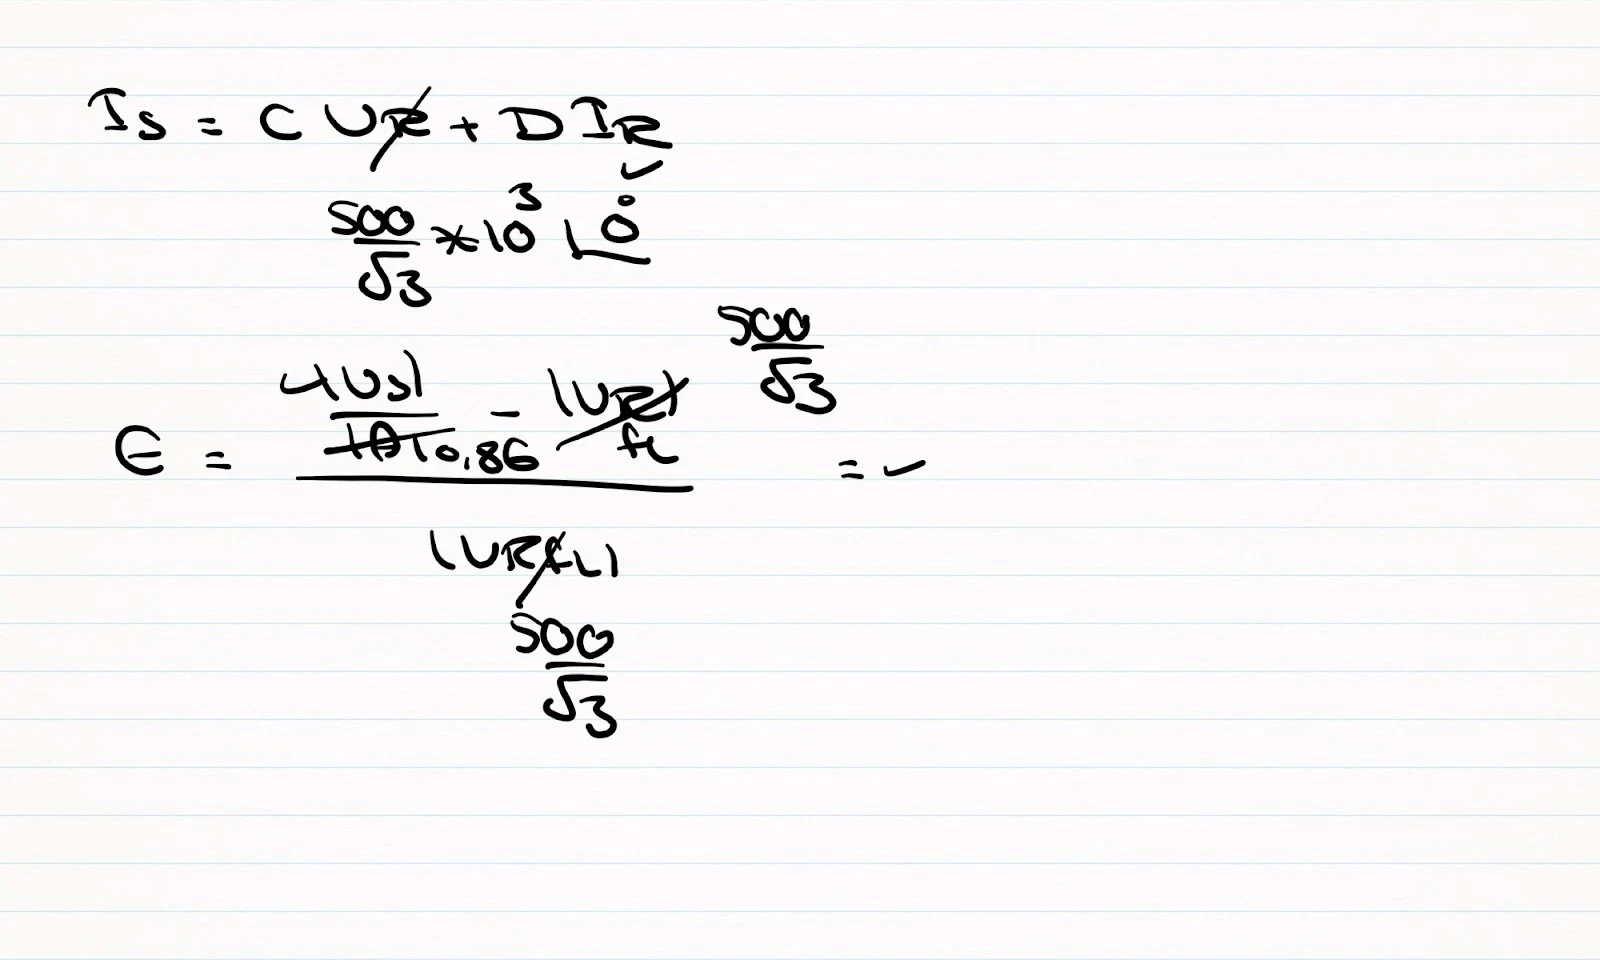 Is = C UR + D IR
500/√3 * 10^3 ∠0°
500/√3
|Us|/|A| 0.86 - |UR| fL
Є = =
|URfL|
500/√3